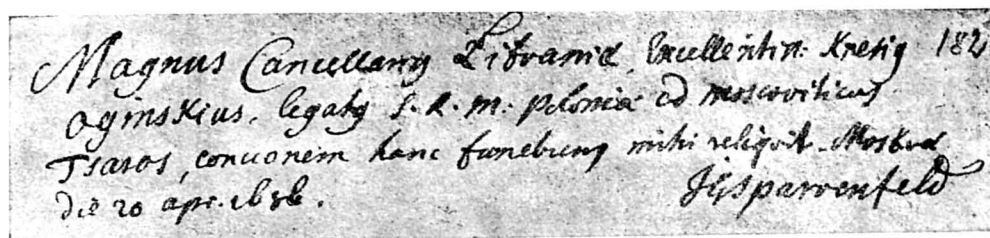 Magnus Cancellarius Litvaniæ, Excellentiss: Knesig 182
Oginskius, legatus S. R. M: Poloniæ ad moscoviticos
Tsaros, concionem hanc funebrem mihi reliquit Moskvæ
die 20 apr. 1686.
JGSparwenfeld